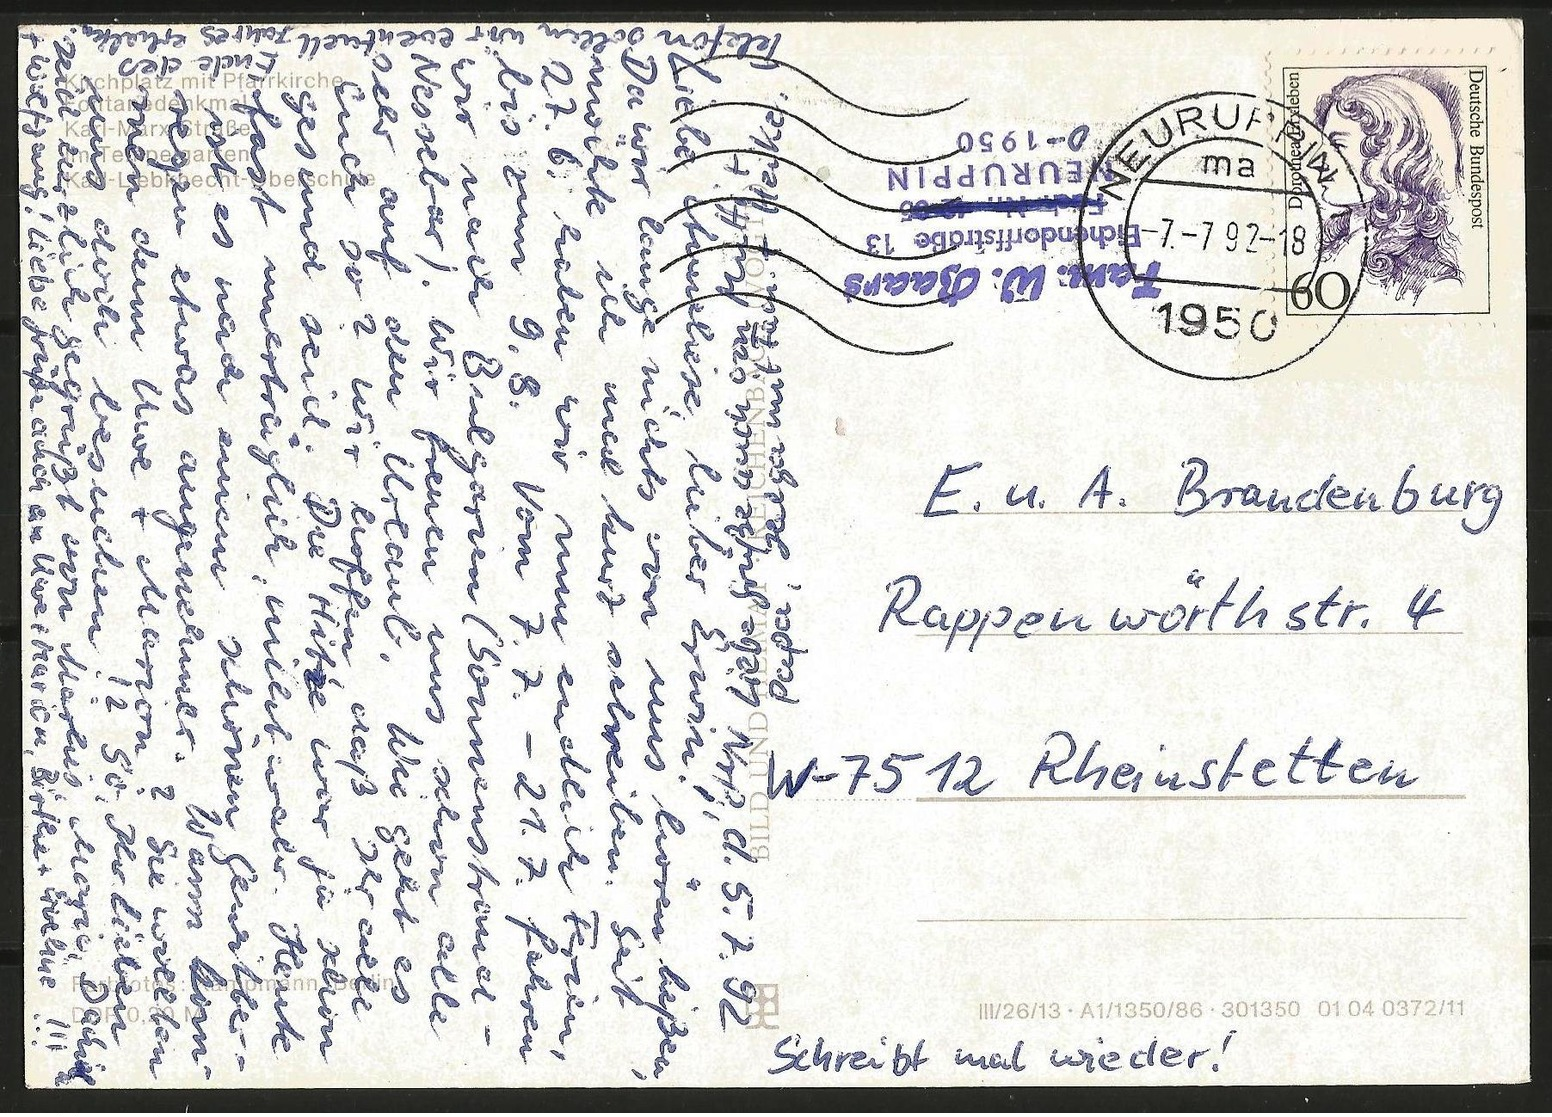 Kirchplatz mit Pfarrkirche
Fontanedenkmal
Karl-Marx-Straße
Im Tempelgarten
Karl-Liebknecht-Oberschule
Nrp, d. 5.7.92
Liebe Anneliese, lieber Erwin!
Da wir lange nichts von uns hören ließen,
möchte ich mal kurz schreiben. Seit
27.6. haben wir nun endlich Ferien,
bis zum 9.8. Vom 7.7. – 21.7. fahren
wir nach Bulgarien (Sonnenstrand –
Nessebar). Wir freuen uns schon alle
sehr auf den Urlaub. Wie geht es
Euch so? Wir hoffen, daß Ihr alle
gesund seid. Die Hitze war ja schon
fast unerträglich, nicht wahr. Heute
ist es nach einem schönen Gewitter-
regen etwas angenehmer. Wann kom-
men denn Uwe + Marion? Sie wollen
uns doch besuchen!
Seid herzlich gegrüßt von Marlis,
+ Wolfgang! Liebe Grüße auch an Uwe + Marion,
Telefon sollen wir eventuell
Ende des Jahres erhalten.
BILD UND HEIMAT REICHENBACH
Farbfotos: Kampmann, Berlin
DDR 0,20 M
Fam. W. Baars
Eichendorffstraße 13
NEURUPPIN
O-1950
NEURUPPIN
ma
-7.-7 92-18
1950
Deutsche Bundespost
Dorothea Erxleben
60
E. u. A. Brandenburg
Rappenwörthstr. 4
W-7512 Rheinstetten
III/26/13 · A1/1350/86 · 301350 01 04 0372/11
Schreibt mal wieder!